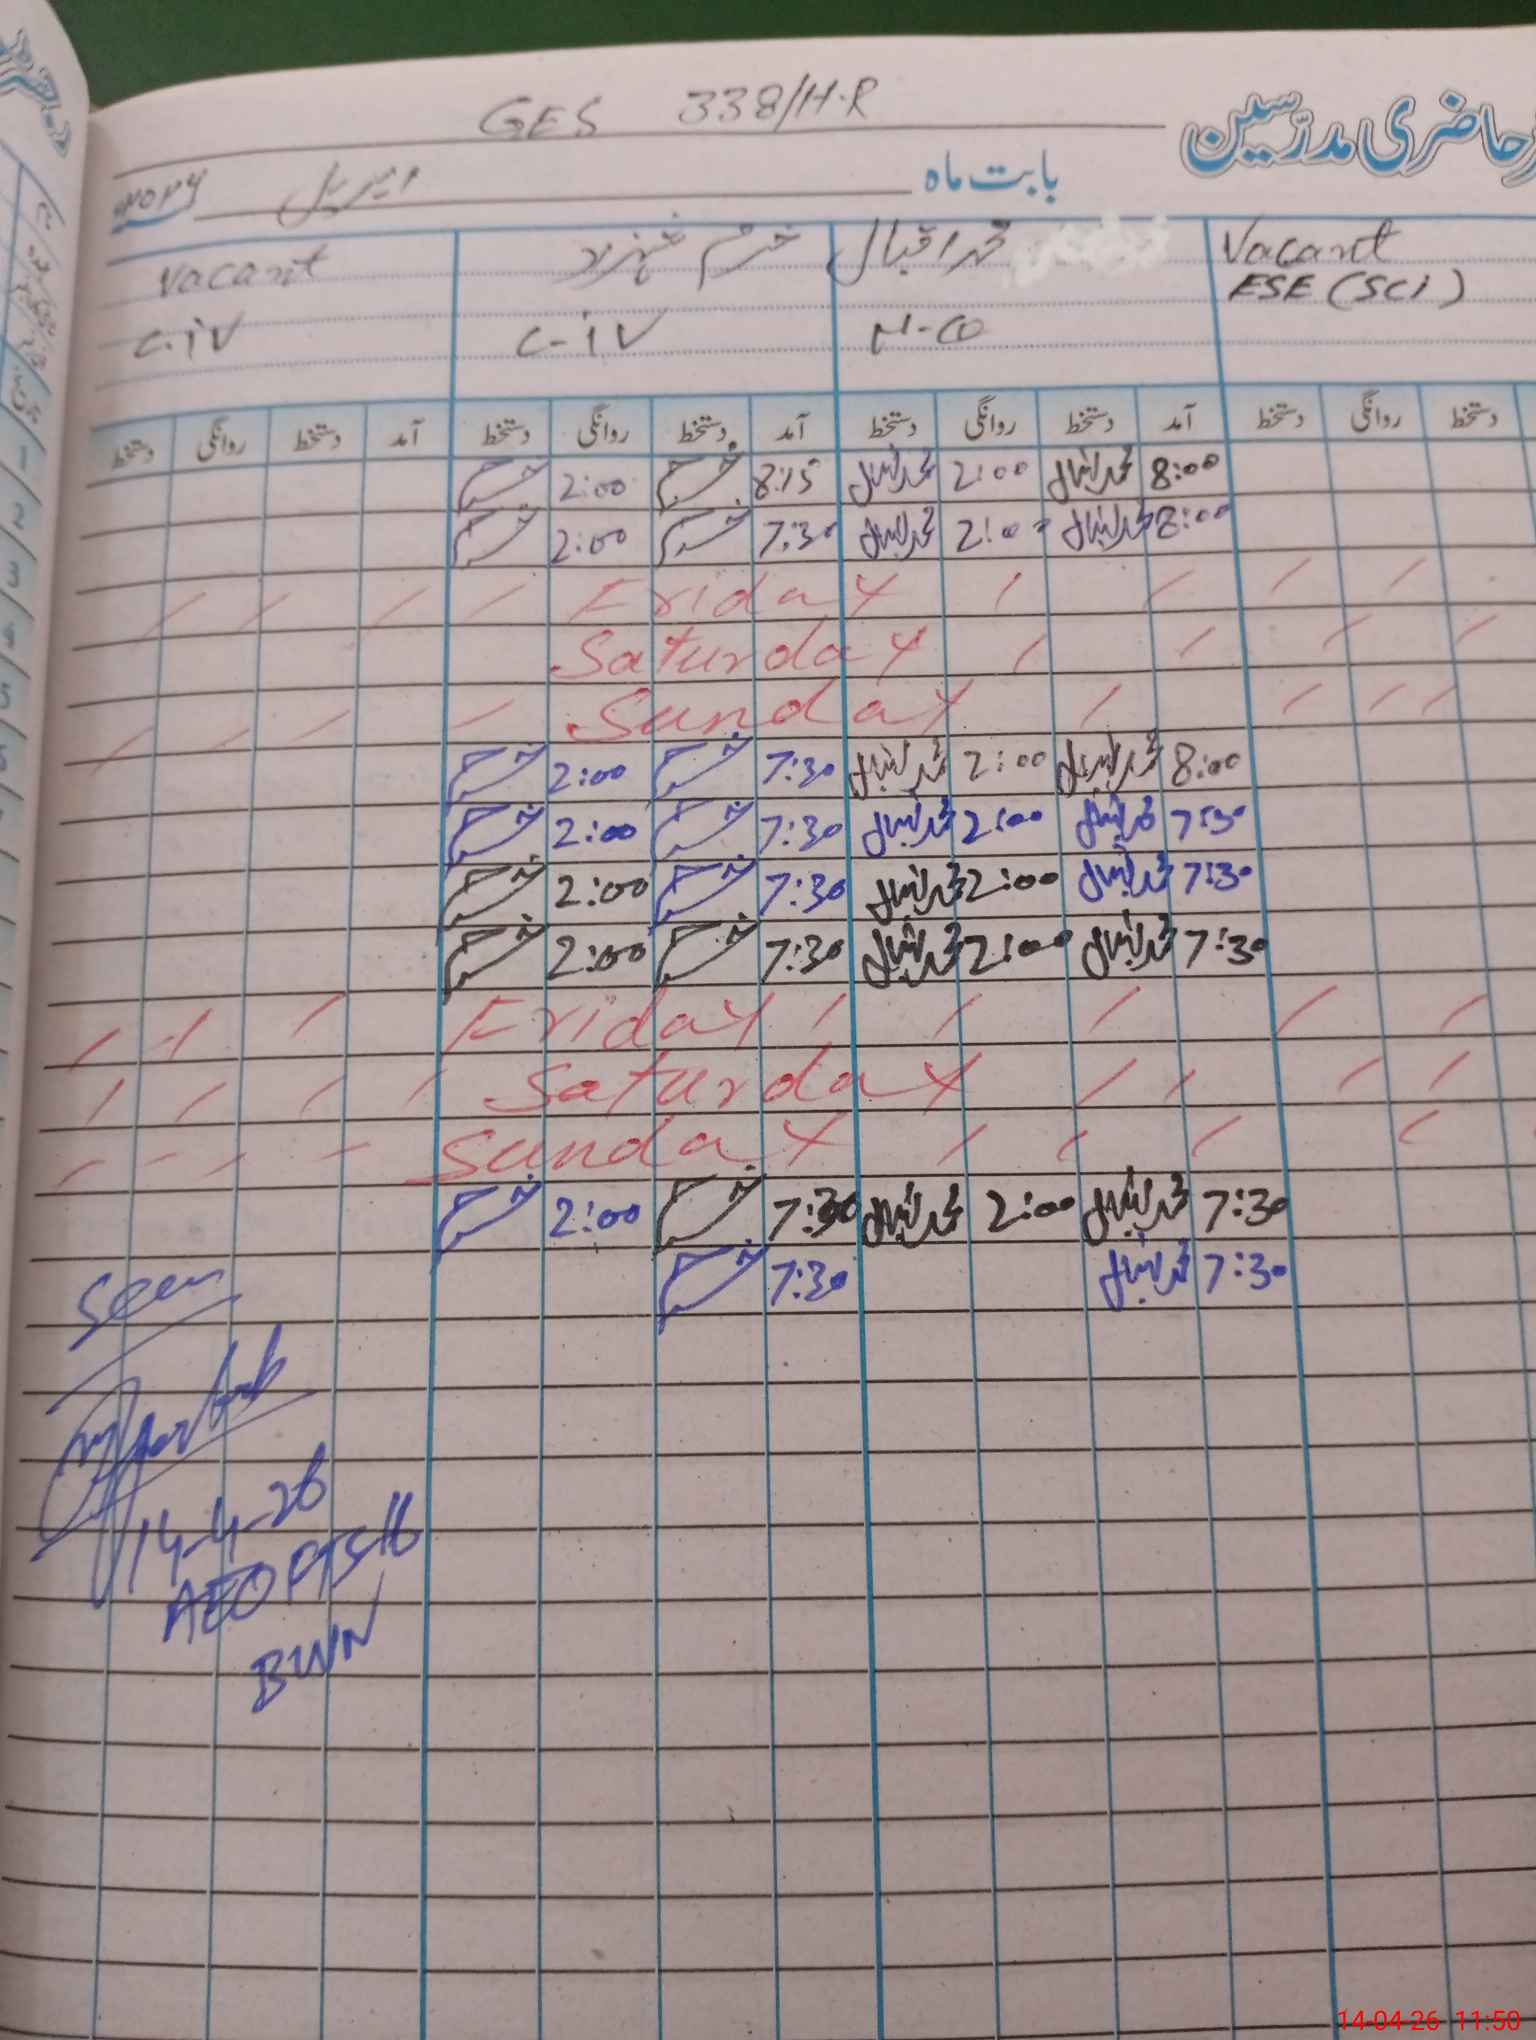 GES 338/H-R
حاضری مدرّسین
بابت ماہ اپریل ۲۰۲۶
Vacant ESE (SCI)
محمد اقبال N-Q
خرم شہزاد C-iV
Vacant C.iV
دستخط روانگی دستخط آمد دستخط روانگی دستخط آمد دستخط روانگی دستخط آمد دستخط روانگی دستخط
1
8:00 محمد اقبال 2:00 محمد اقبال 8:15 خرم 2:00 خرم
2
8:00 محمد اقبال 2:00 محمد اقبال 7:30 خرم 2:00 خرم
3
Friday
4
Saturday
5
Sunday
6
8:00 محمد اقبال 2:00 محمد اقبال 7:30 خرم 2:00 خرم
7:30 محمد اقبال 2:00 محمد اقبال 7:30 خرم 2:00 خرم
7:30 محمد اقبال 2:00 محمد اقبال 7:30 خرم 2:00 خرم
7:30 محمد اقبال 2:00 محمد اقبال 7:30 خرم 2:00 خرم
Friday
Saturday
Sunday
7:30 محمد اقبال 2:00 محمد اقبال 7:30 خرم 2:00 خرم
7:30 محمد اقبال 7:30 خرم
Seen
14-4-26
AEO
BWN
14-04-26 11:50